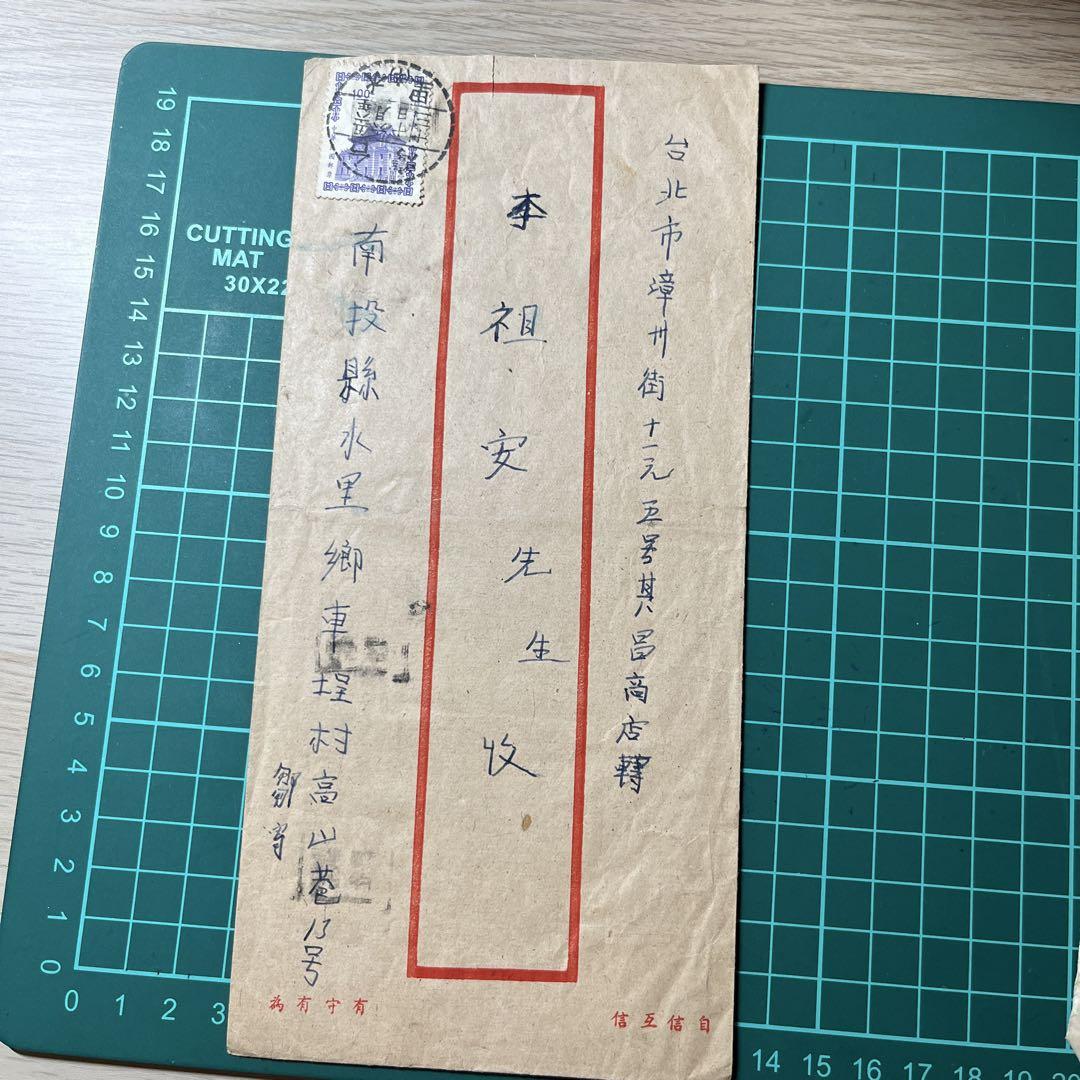 台北市漳州街十一元五号其昌商店轉
李祖安先生收
南投縣水里鄉車埕村高山巷13号
鄒宇
自信互信
有守有為
100
CUTTING
MAT
19
18
17
16
15
14
13
12
11
10
9
8
7
6
5
4
3
2
1
0
0 1 2 3
14 15 16 17 18 19 20